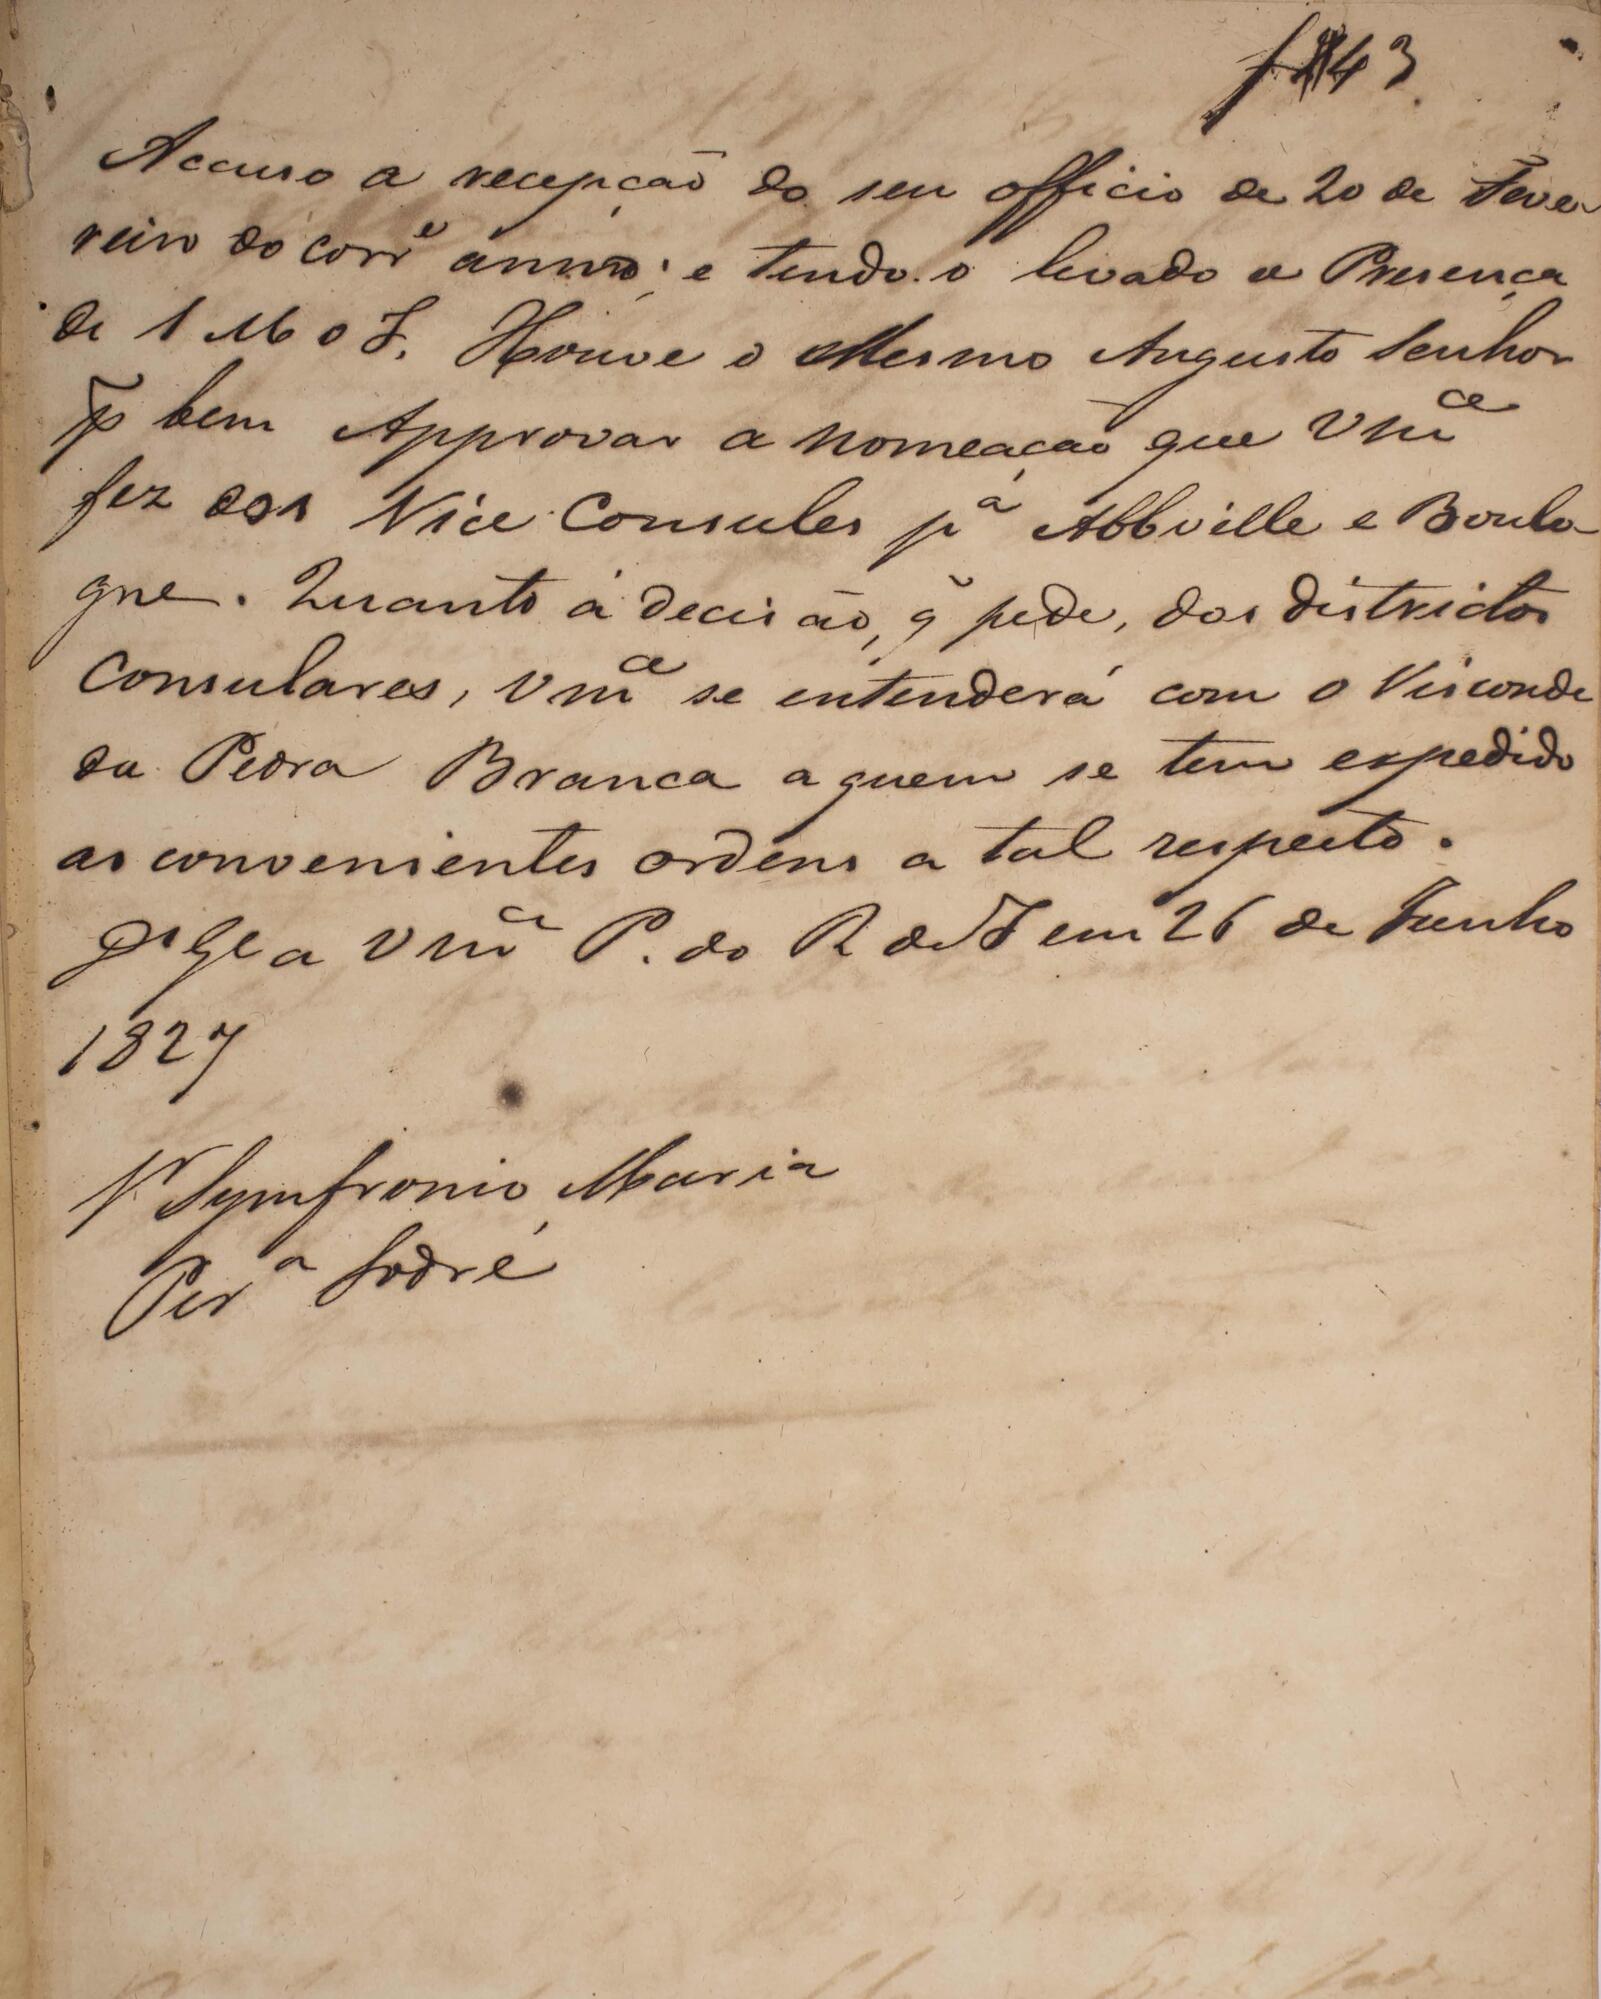 f 43
Accuso a recepção do seu officio de 20 de Feve-
reiro do corr.e anno; e tendo-o levado a Presença
de S M o I. Houve o Mesmo Augusto Senhor
p̃ bem Approvar a nomeação que Vm.ce
fez dos Vice Consules p.a Abbville e Boulo-
gne. Quanto á decisão, q̃ pede, dos districtos
Consulares, Vm.ce se entenderá com o Visconde
da Pedra Branca a quem se tem expedido
as convenientes ordens a tal respeito.
D.s G.e a Vm.ce P. do R de J em 26 de Junho
1827
S.r Symfronio Maria
Per.a Sodré